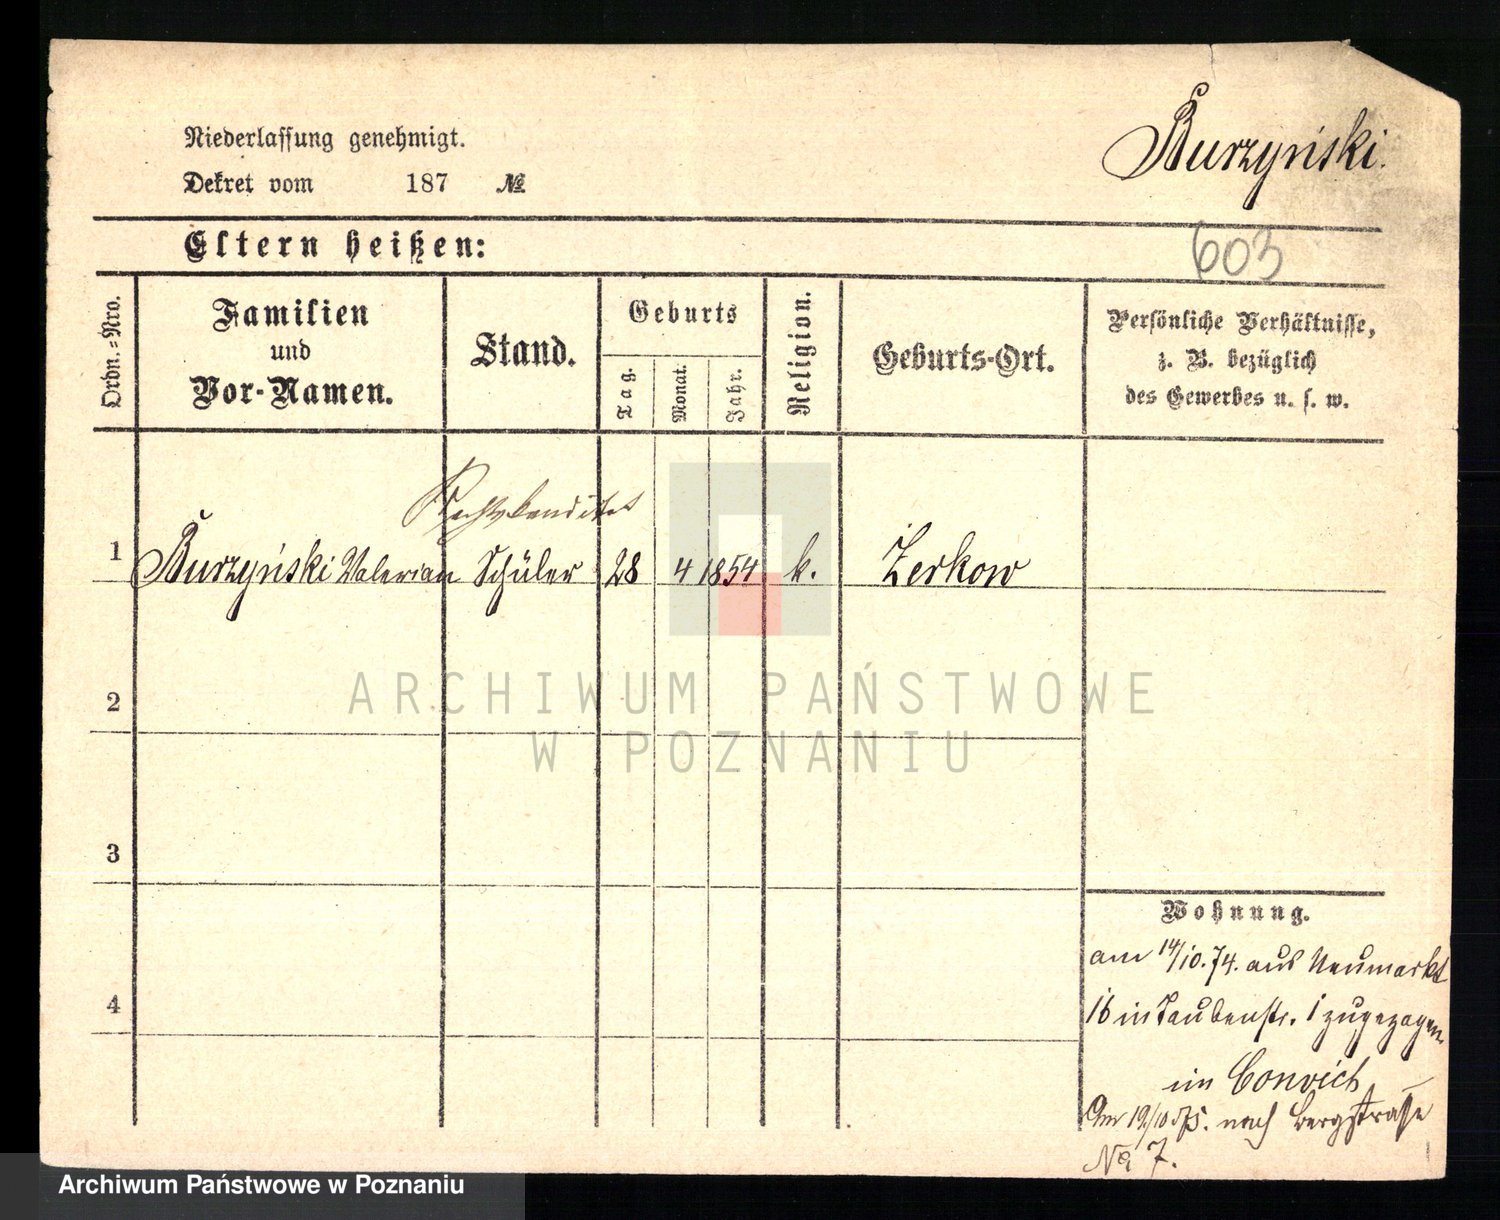 Niederlassung genehmigt.
Dekret vom 187 №
Burzyński.
603
Eltern heißen:
Ordn.-Nro.
Familien
und
Vor-Namen.
Stand.
Geburts
Tag.
Monat.
Jahr.
Religion.
Geburts-Ort.
Persönliche Verhältnisse,
z. B. bezüglich
des Gewerbes u. s. w.
1 Burzyński Valerian Schüler 28 4 1854 k. Zerkow
2
3
4
Wohnung.
am 14/10.74. aus Neumarkt
16 in Taubenstr. 1 zugezogen
im Convict
Am 19/10 75. nach Bergstraße
No 7.
ARCHIWUM PAŃSTWOWE
W POZNANIU
Archiwum Państwowe w Poznaniu